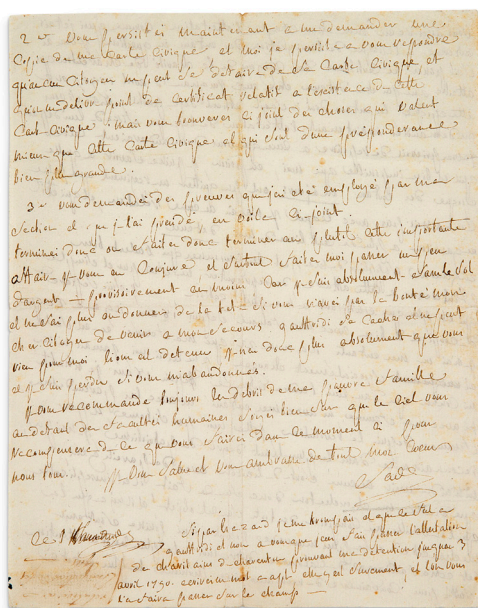 2° vous persistés maintenant a me demander une
Copie de ma Carte Civique et moi je persiste a vous repondre
qu'aucun Citoyen ne peut se defaire de sa Carte Civique, et
qu'on ne délivre point de certificat relatif a l'existence de cette
Carte civique; mais vous trouverez ci joint des choses qui valent
mieux que cette Carte Civique et qui sont d'une préponderance
bien plus grande.
3° vous demandéz des preuves que j'ai eté employé par ma
Section et que j' l'ai presidé, en voila ci-joint.
terminéz donc ou faites donc terminer au plutot cette importante
affaire je vous en Conjure et surtout faites moi passer un peu
d'argent — provisoirement au moins Car je suis absolument sans le sol
et ne sais plus ou donner de la tete si vous n'avéz pas la bonté mon
cher Citoyen de venir a mon secours gauffridi se cache et ne peut
rien pour moi lion est detenu je n'ai donc plus absolument que vous
et je suis perdu si vous m'abandonnés.
je vous recommande toujours les debris de ma pauvre famille
au detail des facultés humaines soyés bien sur que le ciel vous
recompensera de ce que vous faires dans ce moment ci pour
nous tous. je vous salue et vous embrasse de tout mon Coeur
Sade
ce 1
si par hazard je me trompais et que ce fut a
gauffridi et non a vous que j'eus fait passer l'attestation
de charenton prouvant ma detention jusqu'au 3
avril 1790. ecrivéz un mot a apt elle y est surement, et l'on vous
l'a faira passer sur le champ —